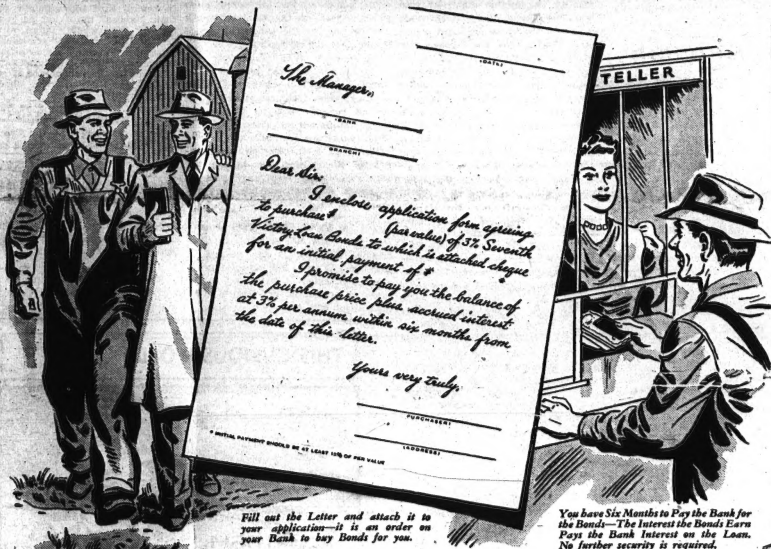 (DATE)
TELLER
The Manager,
(BANK
(BRANCH)
Dear Sir:
I enclose application form agreeing
to purchase $ (par value) of 3% Seventh
Victory Loan Bonds to which is attached cheque
for an initial payment of $
I promise to pay you the balance of
the purchase price plus accrued interest
at 3% per annum within six months from
the date of this letter.
Yours very truly,
(PURCHASER)
(ADDRESS)
* INITIAL PAYMENT SHOULD BE AT LEAST 10% OF PAR VALUE
Fill out the Letter and attach it to
your application—it is an order on
your Bank to buy Bonds for you.
You have Six Months to Pay the Bank for
the Bonds—The Interest the Bonds Earn
Pays the Bank Interest on the Loan.
No further security is required.